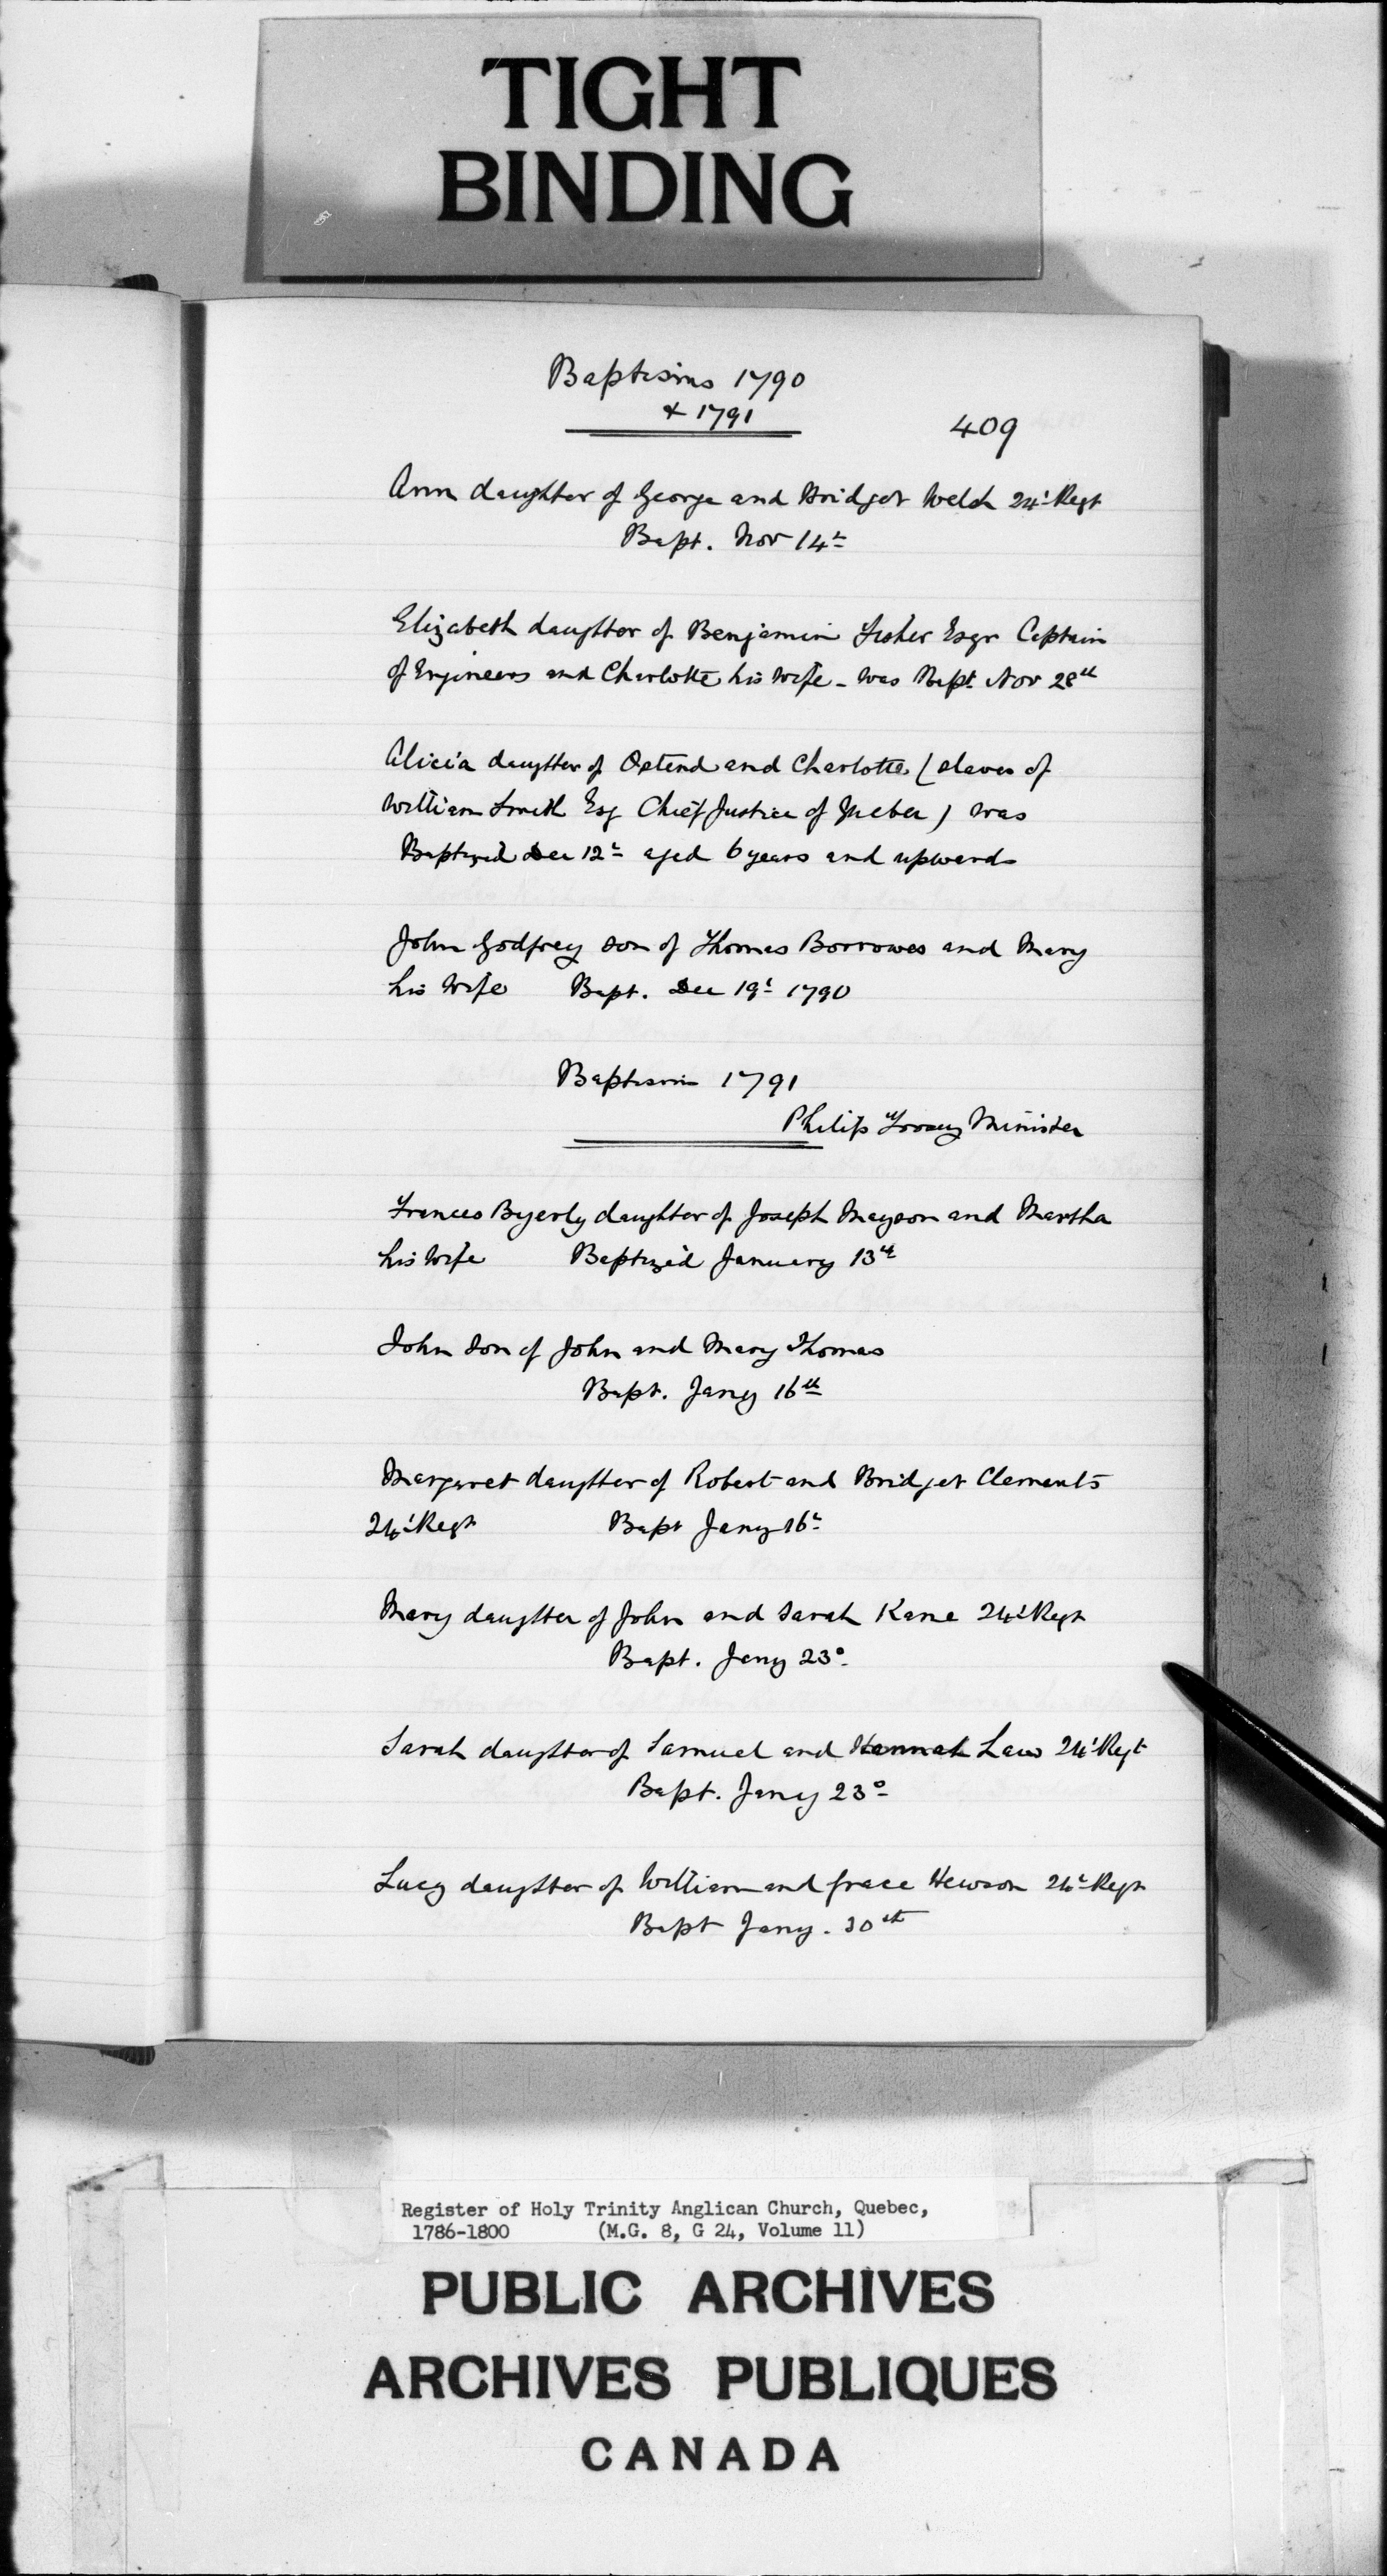 TIGHT
BINDING
Baptisms 1790
& 1791
409
Ann daughter of George and Bridget Welch 24t Regt
Bapt. Nov 14th
Elizabeth daughter of Benjamin Fisher Esqr Captain
of Engineers and Charlotte his wife - was Bapt. Nov 28th
Alicia daughter of Ostend and Charlotte (slaves of
William Smith Esq Chief Justice of Quebec) was
Baptized Dec 12th aged 6 years and upwards
John Godfrey son of Thomas Borrowes and Mary
his wife Bapt. Dec 19t 1790
Baptism 1791
Philip Toosey Minister
Frances Byerly daughter of Joseph Mayson and Martha
his wife Baptized January 13th
John Son of John and Mary Thomas
Bapt. Jany 16th
Margaret daughter of Robert and Bridget Clements
24t Regt Bapt Jany 16t
Mary daughter of John and Sarah Kane 24t Regt
Bapt. Jany 23d
Sarah daughter of Samuel and Hannah Law 24t Regt
Bapt. Jany 23d
Lucy daughter of William and Grace Hewson 24t Regt
Bapt Jany. 30th
Register of Holy Trinity Anglican Church, Quebec,
1786-1800 (M.G. 8, G 24, Volume 11)
PUBLIC ARCHIVES
ARCHIVES PUBLIQUES
CANADA